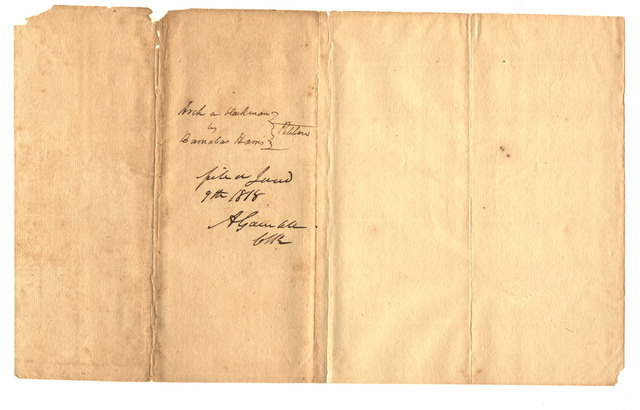 Arch a blackman
by
Barnabas Harris
} Petition
filed June
9th 1818
A Gamble
Clk